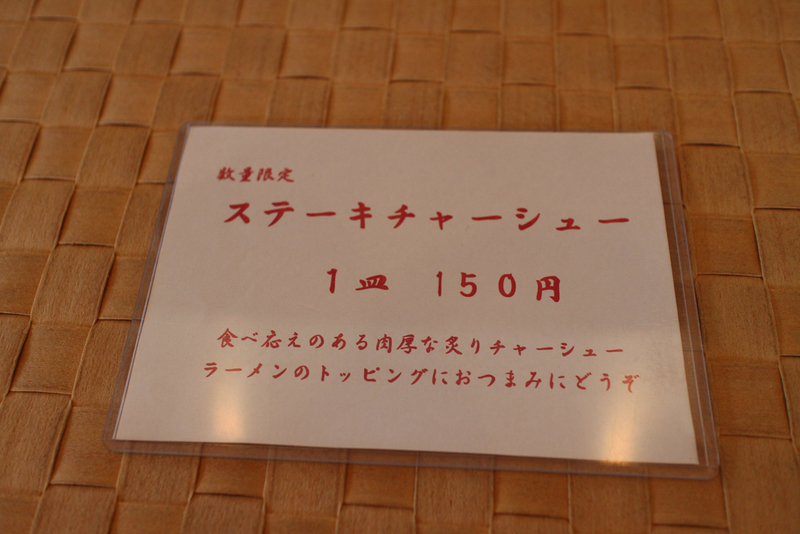 数量限定
ステーキチャーシュー
1皿 150円
食べ応えのある肉厚な炙りチャーシュー
ラーメンのトッピングにおつまみにどうぞ